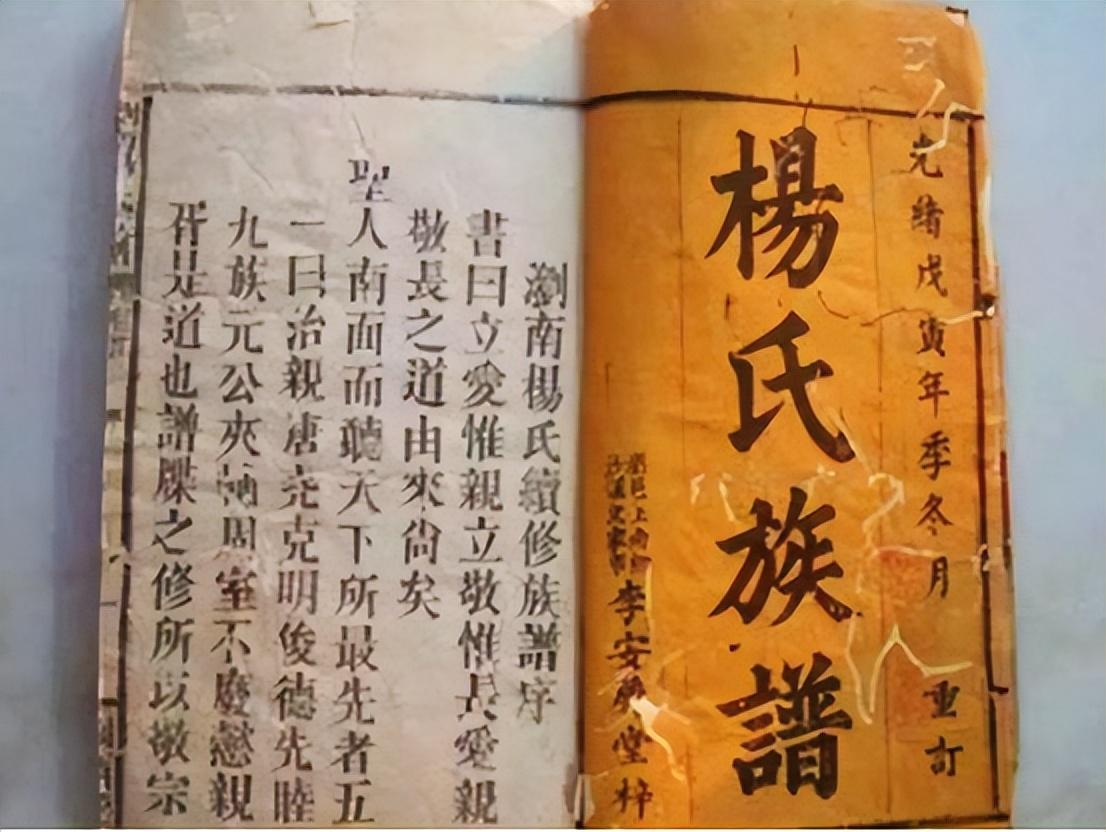 光緒戊寅年季冬月 重訂
楊氏族譜
李安 堂梓
瀏南楊氏續修族譜序
書曰立愛惟親立敬惟長愛親
敬長之道由來尙矣
聖人南面而聽天下所最先者五
一曰治親唐堯克明俊德先睦
九族元公夾輔周室不廢懿親
胥是道也譜牒之修所以敬宗